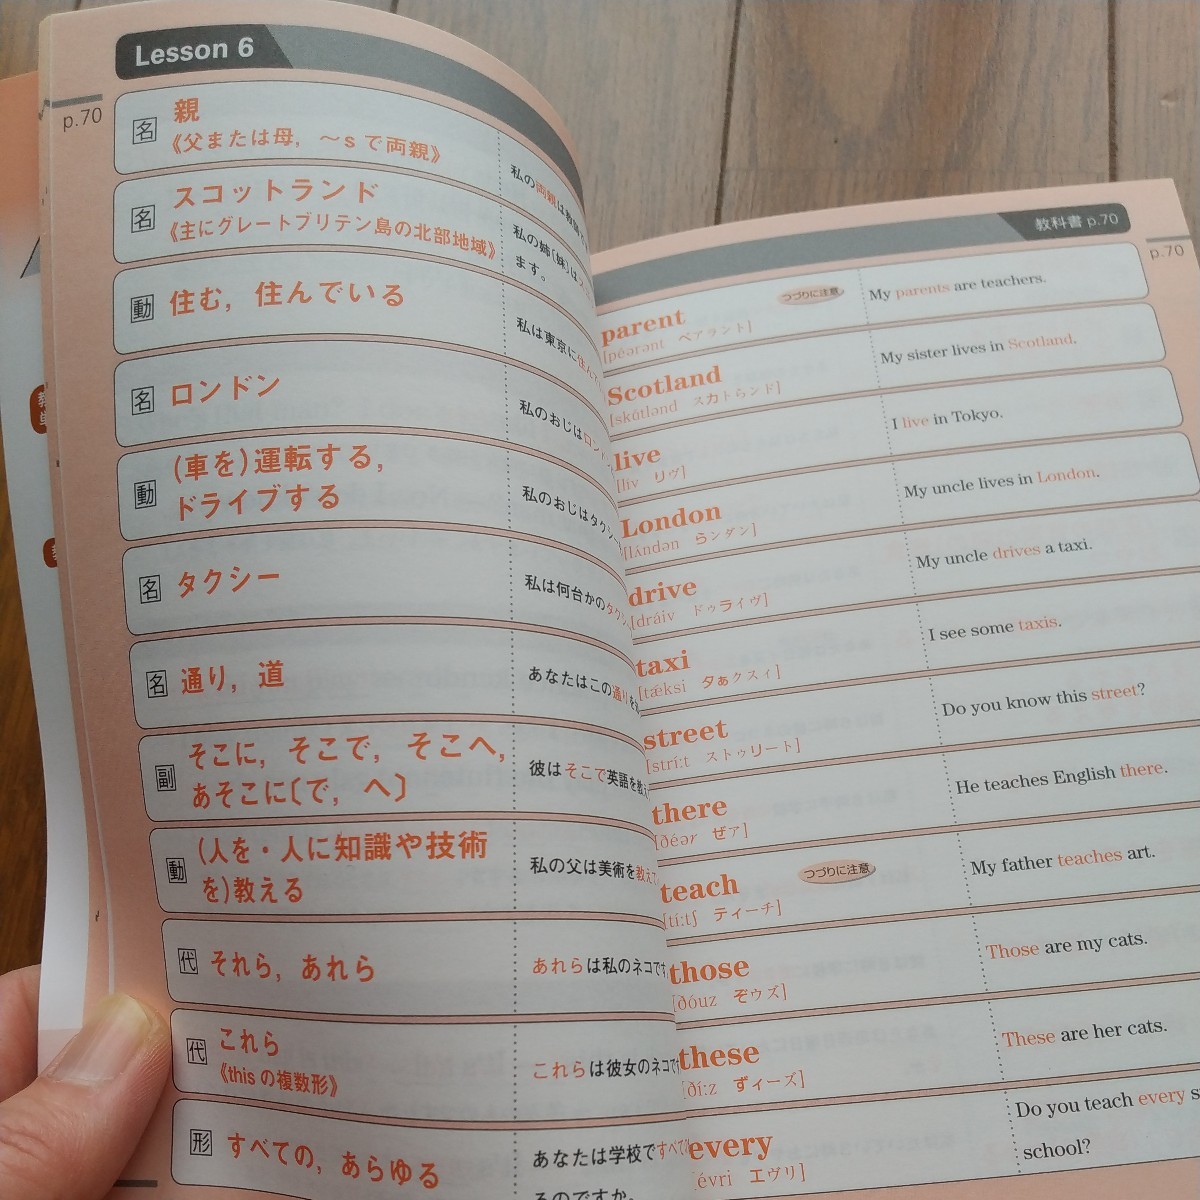 Lesson 6
p.70
名 親
《父または母，〜s で両親》
私の両親は教師
名 スコットランド
《主にグレートブリテン島の北部地域》
私の姉〔妹〕は
ます。
動 住む，住んでいる
私は東京に住んで
名 ロンドン
私のおじはロンド
動 (車を)運転する，
ドライブする
私のおじはタクシー
名 タクシー
私は何台かのタクシ
名 通り，道
あなたはこの通りを
副 そこに，そこで，そこへ，
あそこに〔で，へ〕
彼はそこで英語を教え
動 (人を・人に知識や技術
を)教える
私の父は美術を教えて
代 それら，あれら
あれらは私のネコです
代 これら
《this の複数形》
これらは彼女のネコです
形 すべての，あらゆる
あなたは学校ですべての
るのですか。
教科書 p.70
p.70
parent
つづりに注意
[péərənt ペアラント]
My parents are teachers.
Scotland
[skɑ́tlənd スカトらンド]
My sister lives in Scotland.
live
[liv リヴ]
I live in Tokyo.
London
[lʌ́ndən らンダン]
My uncle lives in London.
drive
[dráiv ドゥライヴ]
My uncle drives a taxi.
taxi
[tǽksi タぁクスィ]
I see some taxis.
street
[stríːt ストゥリート]
Do you know this street?
there
[ðéər ぜア]
He teaches English there.
teach
つづりに注意
[tíːtʃ ティーチ]
My father teaches art.
those
[ðóuz ぞウズ]
Those are my cats.
these
[ðíːz ずィーズ]
These are her cats.
every
[évri エヴリ]
Do you teach every s
school?